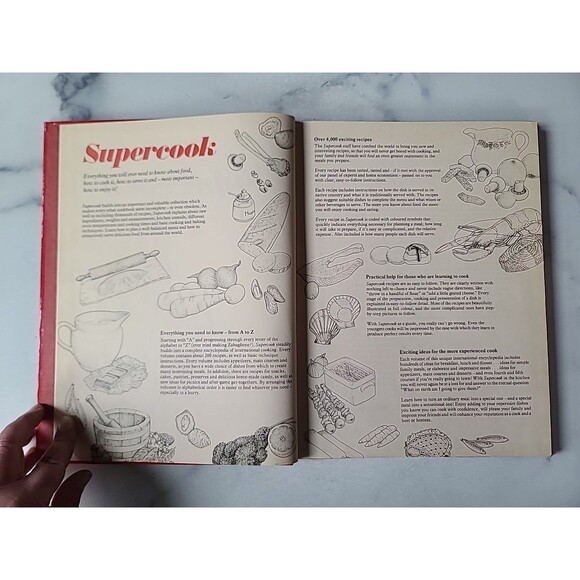 Supercook
Everything you will ever need to know about food,
how to cook it, how to serve it and – more important –
how to enjoy it!
Supercook builds into an important and valuable collection which
makes every other cookbook seem incomplete or even obsolete. As
well as including thousands of recipes, Supercook explains about raw
ingredients, weights and measurements, kitchen utensils, different
oven temperatures and cooking times and basic cooking and baking
techniques. Learn how to plan a well balanced menu and how to
attractively serve delicious food from around the world.
Everything you need to know – from A to Z
Starting with "A" and progressing through every letter of the
alphabet to "Z" (ever tried making Zabaglione?), Supercook steadily
builds into a complete encyclopedia of international cooking. Every
volume contains about 200 recipes, as well as basic technique
instructions. Every volume includes appetizers, main courses and
desserts, so you have a wide choice of dishes from which to create
many interesting meals. In addition, there are recipes for snacks,
cakes, pastries, preserves and delicious home-made candy, as well as
new ideas for picnics and after-game get-togethers. By arranging the
volumes in alphabetical order it is easier to find whatever you need
especially in a hurry.
Over 4,000 exciting recipes
The Supercook staff have combed the world to bring you new and
interesting recipes, so that you will never get bored with cooking, and
your family and friends will find an even greater enjoyment in the
meals you prepare.
Every recipe has been tested, tasted and – if it met with the approval
of our panel of experts and home economists – passed on to you
with clear, easy-to-follow instructions.
Each recipe includes instructions on how the dish is served in its
native country and what it is traditionally served with. The recipes
also suggest suitable dishes to complete the menu and what wine or
other beverages to serve. The more you know about food the more
you will enjoy cooking and eating.
Every recipe in Supercook is coded with coloured symbols that
quickly indicate everything necessary for planning a meal; how long
it will take to prepare, if it's easy or complicated, and the relative
expense. Also included is how many people each dish will serve.
Practical help for those who are learning to cook
Supercook recipes are so easy-to-follow. They are clearly written with
nothing left to chance and never include vague directions, like
"throw in a handful of flour" or "add a little grated cheese." Every
stage of the preparation, cooking and presentation of a dish is
explained in easy-to-follow detail. Most of the recipes are beautifully
illustrated in full colour, and the more complicated ones have step-
by-step pictures to follow.
With Supercook as a guide, you really can't go wrong. Even the
youngest cooks will be impressed by the ease with which they learn to
produce perfect results every time.
Exciting ideas for the more experienced cook
Each volume of this unique international encyclopedia includes
hundreds of ideas for breakfast, lunch and dinner . . . ideas for simple
family meals, or elaborate and impressive meals . . . ideas for
appetizers, main courses and desserts – and even fourth and fifth
courses if you're really going to town! With Supercook in the kitchen
you will never again be at a loss for and answer to the eternal question:
"What on earth am I going to give them?"
Learn how to turn an ordinary meal into a special one – and a special
meal into a sensational one! Enjoy adding to your repertoire dishes
you know you can cook with confidence, will please your family and
impress your friends and will enhance your reputation as a cook and a
host or hostess.